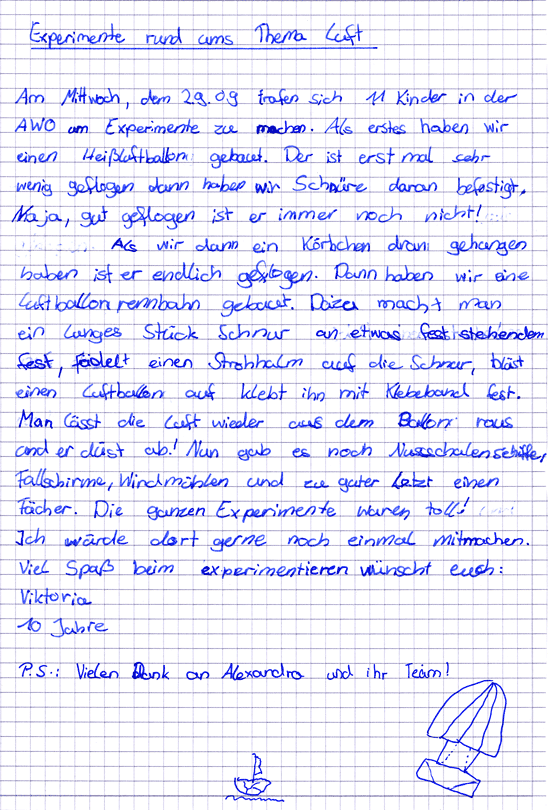 Experimente rund ums Thema Luft
Am Mittwoch, dem 29.09 trafen sich 11 Kinder in der
AWO um Experimente zu machen. Als erstes haben wir
einen Heißluftballon gebaut. Der ist erst mal sehr
wenig geflogen dann haben wir Schnüre daran befestigt.
Naja, gut geflogen ist er immer noch nicht!
Als wir dann ein Körbchen dran gehangen
haben ist er endlich geflogen. Dann haben wir eine
Luftballonrennbahn gebaut. Dazu macht man
ein langes Stück Schnur an etwas fest stehendem
fest, fädelt einen Strohhalm auf die Schnur, bläst
einen Luftballon auf klebt ihn mit Klebeband fest.
Man lässt die Luft wieder aus dem Ballon raus
und er düst ab! Nun gab es noch Nussschalenschiffe,
Fallschirme, Windmühlen und zu guter Letzt einen
Fächer. Die ganzen Experimente waren toll!
Ich würde dort gerne noch einmal mitmachen.
Viel Spaß beim experimentieren wünscht euch:
Viktoria
10 Jahre
P.S.: Vielen Dank an Alexandra und ihr Team!